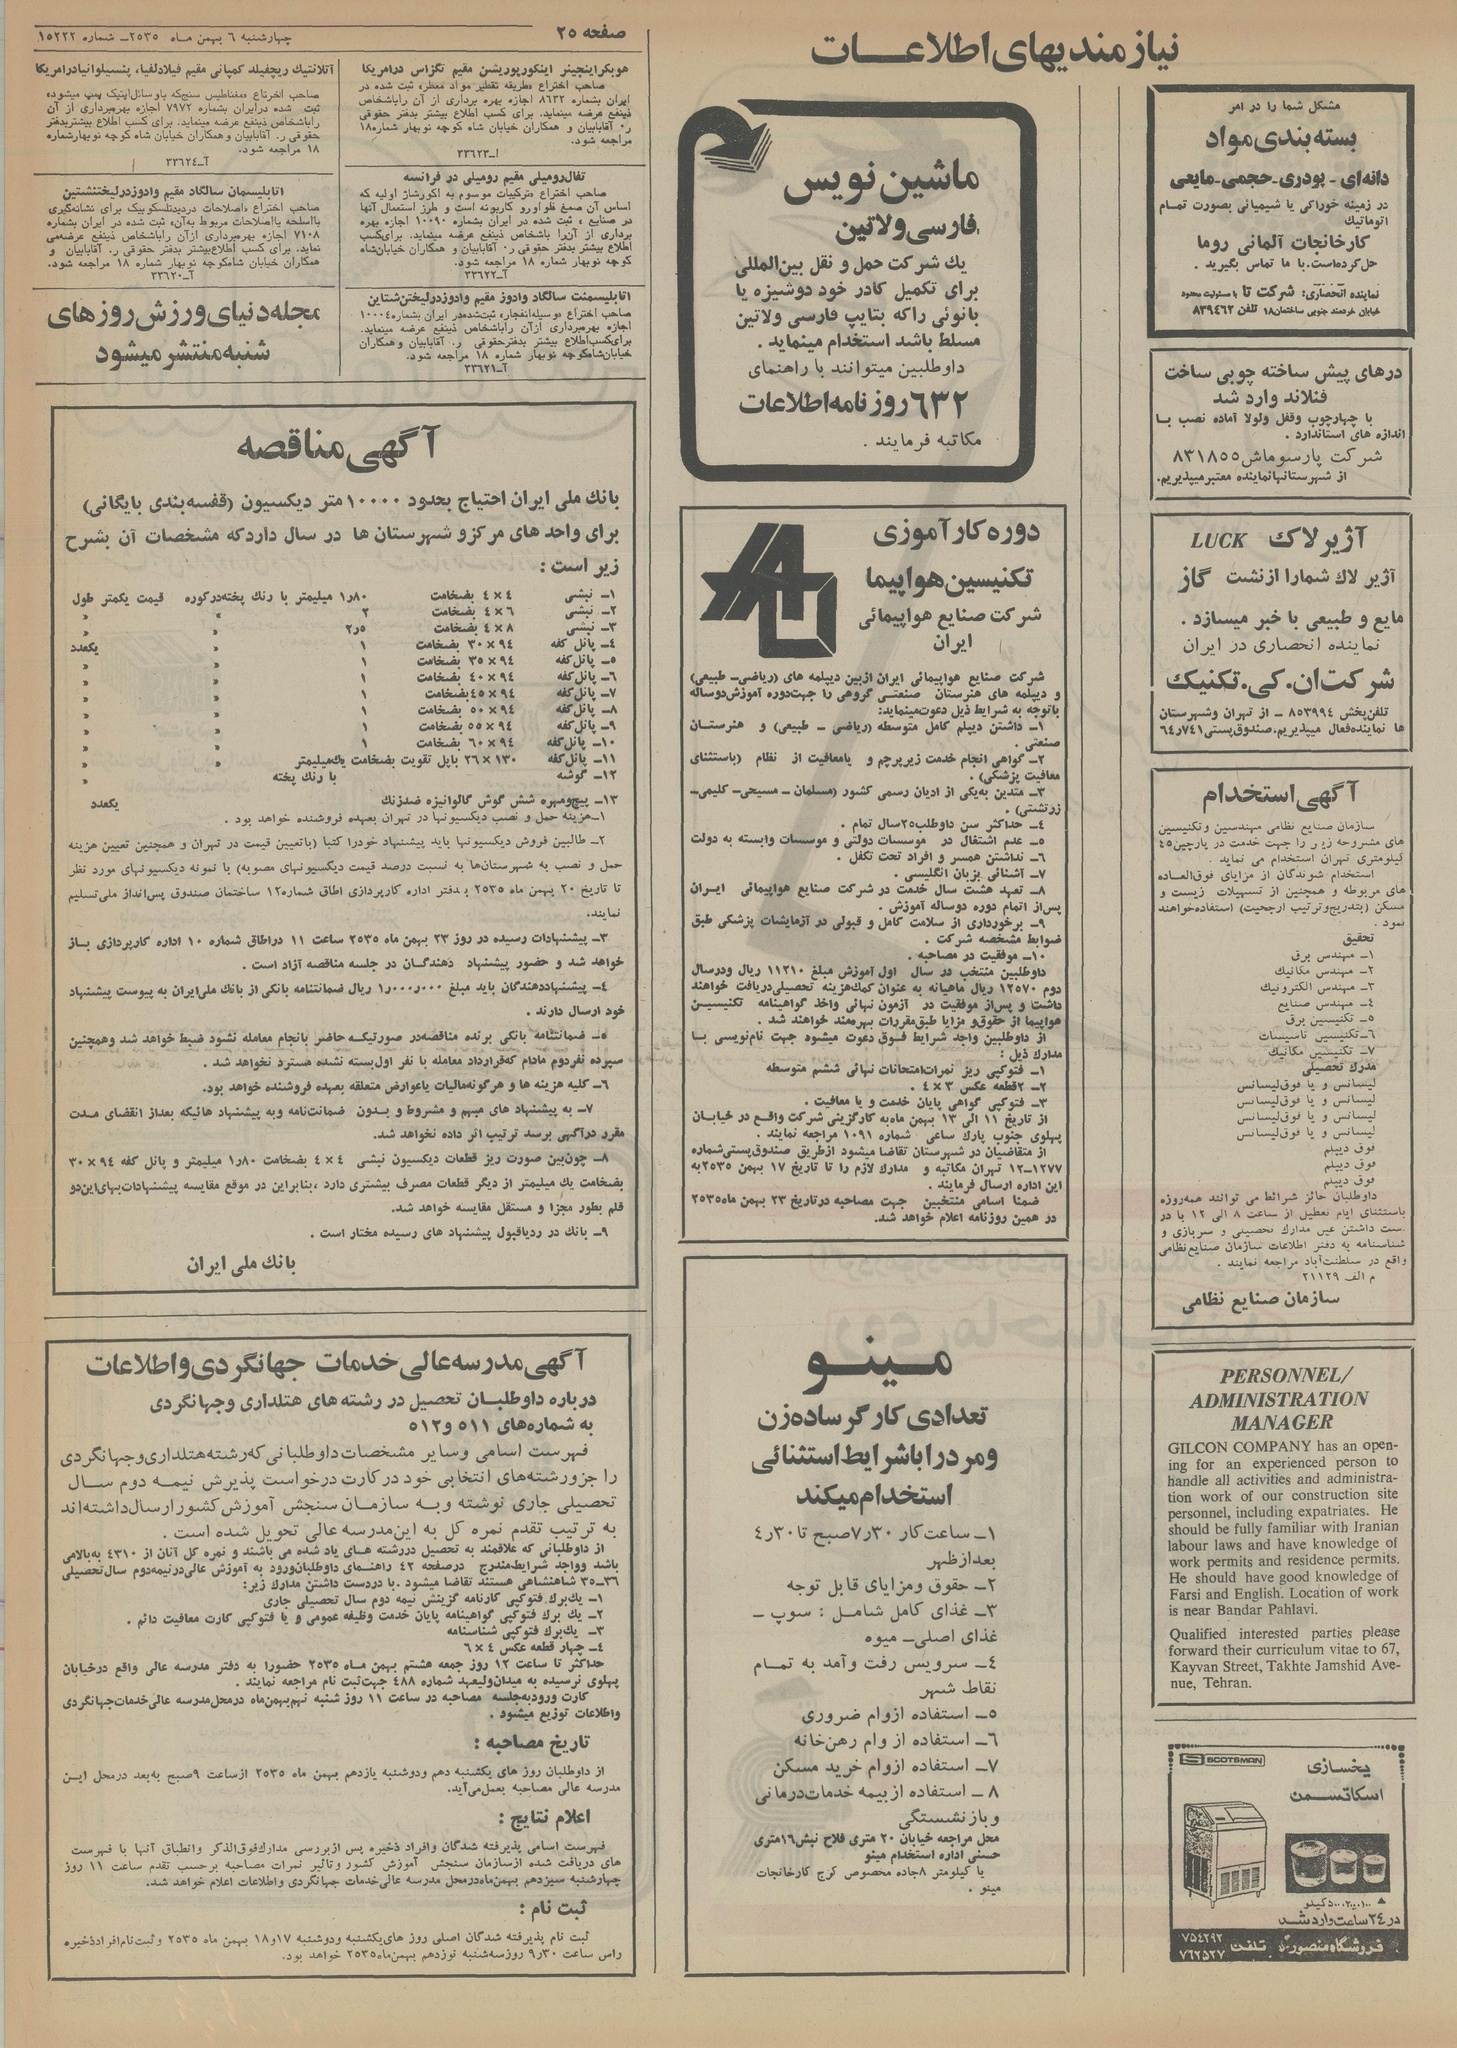 نیازمندیهای اطلاعات
صفحه ۲۵
چهارشنبه ۶ بهمن ماه ۲۵۳۵ـ شماره ۱۵۲۲۲
مشکل شما را در امر
بسته‌بندی مواد
دانه‌ای ـ پودری ـ حجمی ـ مایعی
در زمینه خوراکی یا شیمیائی بصورت تمام
اتوماتیک
کارخانجات آلمانی روما
حل کرده‌است. با ما تماس بگیرید .
نماینده انحصاری: شرکت تا با مسئولیت محدود
خیابان خردمند جنوبی ساختمان ۱۸ تلفن ۸۳۹۴۶۲
درهای پیش ساخته چوبی ساخت
فنلاند وارد شد
با چهارچوب وقفل ولولا آماده نصب با
اندازه های استاندارد .
شرکت پارسوماش ۸۳۱۸۵۵
از شهرستانها نماینده معتبر میپذیریم.
آژیر لاک LUCK
آژیر لاک شما را از نشت گاز
مایع و طبیعی با خبر میسازد .
نماینده انحصاری در ایران
شرکت ان. کی. تکنیک
تلفن پخش ۸۵۳۹۹۴ ـ از تهران وشهرستان
ها نماینده فعال میپذیریم. صندوق پستی ۶۴٫۷۴۱
آگهی استخدام
سازمان صنایع نظامی مهندسین وتکنیسین
های مشروحه زیر را جهت خدمت در پارچین ۴۵
کیلومتری تهران استخدام می نماید .
استخدام شوندگان از مزایای فوق‌العاده
های مربوطه و همچنین از تسهیلات زیست و
مسکن (بتدریج وترتیب ارجحیت) استفاده خواهند
نمود .
تحقیق
۱ـ مهندس برق
۲ـ مهندس مکانیک
۳ـ مهندس الکترونیک
۴ـ مهندس صنایع
۵ـ تکنیسین برق
۶ـ تکنیسین تاسیسات
۷ـ تکنیسین مکانیک
مدرک تحصیلی
لیسانس و یا فوق لیسانس
لیسانس و یا فوق لیسانس
لیسانس و یا فوق لیسانس
لیسانس و یا فوق لیسانس
فوق دیپلم
فوق دیپلم
فوق دیپلم
داوطلبان حائز شرائط می توانند همه‌روزه
باستثنای ایام تعطیل از ساعت ۸ الی ۱۲ با در
دست داشتن عین مدارک تحصیلی و سربازی و
شناسنامه به دفتر اطلاعات سازمان صنایع نظامی
واقع در سلطنت‌آباد مراجعه نمایند .
م الف ۲۱۱۲۹
سازمان صنایع نظامی
PERSONNEL/
ADMINISTRATION
MANAGER
GILCON COMPANY has an open-
ing for an experienced person to
handle all activities and administra-
tion work of our construction site
personnel, including expatriates. He
should be fully familiar with Iranian
labour laws and have knowledge of
work permits and residence permits.
He should have good knowledge of
Farsi and English. Location of work
is near Bandar Pahlavi.
Qualified interested parties please
forward their curriculum vitae to 67,
Kayvan Street, Takhte Jamshid Ave-
nue, Tehran.
SCOTSMAN
یخسازی
اسکاتسمن
در ۲۴ ساعت وارد شد
فروشگاه منصور تلفن ۷۵۴۲۹۲
۷۶۲۵۲۷
ماشین نویس
فارسی ولاتین
یك شرکت حمل و نقل بین‌المللی
برای تکمیل کادر خود دوشیزه یا
بانوئی راکه بتایپ فارسی ولاتین
مسلط باشد استخدام مینماید .
داوطلبین میتوانند با راهنمای
۶۳۲ روزنامه اطلاعات
مکاتبه فرمایند .
دوره کارآموزی
تکنیسین هواپیما
شرکت صنایع هواپیمائی
ایران
شرکت صنایع هواپیمائی ایران ازبین دیپلمه های (ریاضی ـ طبیعی)
و دیپلمه های هنرستان صنعتی گروهی را جهت دوره آموزش دوساله
باتوجه به شرایط ذیل دعوت مینماید:
۱ـ داشتن دیپلم کامل متوسطه (ریاضی ـ طبیعی) و هنرستان
صنعتی .
۲ـ گواهی انجام خدمت زیرپرچم و یامعافیت از نظام (باستثنای
معافیت پزشکی) .
۳ـ متدین به‌یکی از ادیان رسمی کشور (مسلمان ـ مسیحی ـ کلیمی ـ
زرتشتی) .
۴ـ حداکثر سن داوطلب ۲۵ سال تمام .
۵ـ عدم اشتغال در موسسات دولتی و موسسات وابسته به دولت
۶ـ نداشتن همسر و افراد تحت تکفل .
۷ـ آشنائی بزبان انگلیسی .
۸ـ تعهد هشت سال خدمت در شرکت صنایع هواپیمائی ایران
پس از اتمام دوره دوساله آموزش .
۹ـ برخورداری از سلامت کامل و قبولی در آزمایشات پزشکی طبق
ضوابط مشخصه شرکت .
۱۰ـ موفقیت در مصاحبه .
داوطلبین منتخب در سال اول آموزش مبلغ ۱۱۲۱۰ ریال ودرسال
دوم ۱۲۵۷۰ ریال ماهیانه به عنوان کمك هزینه تحصیلی دریافت خواهند
داشت و پس از موفقیت در آزمون نهائی واخذ گواهینامه تکنیسین
هواپیما از حقوق و مزایا طبق مقررات بهره‌مند خواهند شد .
از داوطلبین واجد شرایط فوق دعوت میشود جهت نام‌نویسی با
مدارک ذیل :
۱ـ فتوکپی ریز نمرات امتحانات نهائی ششم متوسطه
۲ـ ۲ قطعه عکس ۳ × ۴ .
۳ـ فتوکپی گواهی پایان خدمت و یا معافیت .
از تاریخ ۱۱ الی ۱۳ بهمن ماه به کارگزینی شرکت واقع در خیابان
پهلوی جنوب پارک ساعی شماره ۱۰۹۱ مراجعه نمایند .
از متقاضیان در شهرستان تقاضا میشود ازطریق صندوق پستی شماره
۱۲ـ۱۲۷۷ تهران مکاتبه و مدارک لازم را تا تاریخ ۱۷ بهمن ۲۵۳۵ به
این اداره ارسال فرمایند .
ضمنا اسامی منتخبین جهت مصاحبه درتاریخ ۲۳ بهمن ماه ۲۵۳۵
در همین روزنامه اعلام خواهد شد.
مینو
تعدادی کارگر ساده زن
ومرد را باشرایط استثنائی
استخدام میکند
۱ـ ساعت کار ۷٫۳۰ صبح تا ۴٫۳۰
بعدازظهر
۲ـ حقوق ومزایای قابل توجه
۳ـ غذای کامل شامل : سوپ ـ
غذای اصلی ـ میوه
۴ـ سرویس رفت وآمد به تمام
نقاط شهر
۵ـ استفاده ازوام ضروری
۶ـ استفاده از وام رهن خانه
۷ـ استفاده ازوام خرید مسکن
۸ ـ استفاده از بیمه خدمات درمانی
وبازنشستگی
محل مراجعه خیابان ۲۰ متری فلاح نبش ۱۶ متری
حسنی اداره استخدام مینو
یا کیلومتر ۸ جاده مخصوص کرج کارخانجات
مینو .
هوبکر اینجینر اینکورپوریشن مقیم تگزاس درامریکا
صاحب اختراع «طریقه تقطیر مواد معطر» ثبت شده در
ایران بشماره ۸۶۳۲ اجازه بهره برداری از آن را باشخاص
ذینفع عرضه مینماید. برای کسب اطلاع بیشتر بدفتر حقوقی
ر. آقابابیان و همکاران خیابان شاه کوچه نوبهار شماره ۱۸
مراجعه شود.
آـ۳۳۶۲۳
تفال رومیلی مقیم رومیلی در فرانسه
صاحب اختراع «ترکیبات موسوم به اکورشاژ اولیه که
اساس آن صمغ فلواورو کاربونه است و طرز استعمال آنها
در صنایع» ثبت شده در ایران بشماره ۱۰۰۹۰ اجازه بهره
برداری از آن را باشخاص ذینفع عرضه مینماید. برای کسب
اطلاع بیشتر بدفتر حقوقی ر. آقابابیان و همکاران خیابان شاه
کوچه نوبهار شماره ۱۸ مراجعه شود.
آـ۳۳۶۲۲
اتابلیسمنت سالگاد وادوز مقیم وادوز درلیختن شتاین
صاحب اختراع «وسیله انفجار» ثبت شده در ایران بشماره ۱۰۰۰۴
اجازه بهره‌برداری ازآن راباشخاص ذینفع عرضه مینماید.
برای کسب اطلاع بیشتر بدفتر حقوقی ر. آقابابیان و همکاران
خیابان شاه کوچه نوبهار شماره ۱۸ مراجعه شود.
آـ۳۳۶۲۱
آتلانتیك ریچفیلد کمپانی مقیم فیلادلفیا، پنسیلوانیا درامریکا
صاحب اختراع «مغناطیس سنج که باوسائل اپتیک پمپ میشود»
ثبت شده در ایران بشماره ۷۹۷۲ اجازه بهره‌برداری از آن
راباشخاص ذینفع عرضه مینماید. برای کسب اطلاع بیشتر بدفتر
حقوقی ر. آقابابیان و همکاران خیابان شاه کوچه نوبهار شماره
۱۸ مراجعه شود.
آـ۳۳۶۲۴
اتابلیسمان سالگاد مقیم وادوز درلیختنشتین
صاحب اختراع «اصلاحات دردید تلسکوپیک برای نشانه‌گیری
بااسلحه یااصلاحات مربوط به‌آن» ثبت شده در ایران بشماره
۷۱۰۸ اجازه بهره‌برداری ازآن راباشخاص ذینفع عرضه می
نماید. برای کسب اطلاع بیشتر بدفتر حقوقی ر. آقابابیان و
همکاران خیابان شاه کوچه نوبهار شماره ۱۸ مراجعه شود.
آـ۳۳۶۲۰
مجله دنیای ورزش روزهای
شنبه منتشر میشود
آگهی مناقصه
بانك ملی ایران احتیاج بحدود ۱۰۰۰۰ متر دیکسیون (قفسه بندی بایگانی)
برای واحد های مرکز و شهرستان ها در سال دارد که مشخصات آن بشرح
زیر است :
۱ـ نبشی ۴ × ۴ بضخامت ۱٫۸۰ میلیمتر با رنك پخته درکوره قیمت یکمتر طول
۲ـ نبشی ۶ × ۴ بضخامت ۲ » »
۳ـ نبشی ۸ × ۴ بضخامت ۲٫۵ » »
۴ـ پانل کفه ۹۴ × ۳۰ بضخامت ۱ » یکعدد
۵ـ پانل کفه ۹۴ × ۳۵ بضخامت ۱ » »
۶ـ پانل کفه ۹۴ × ۴۰ بضخامت ۱ » »
۷ـ پانل کفه ۹۴ × ۴۵ بضخامت ۱ » »
۸ـ پانل کفه ۹۴ × ۵۰ بضخامت ۱ » »
۹ـ پانل کفه ۹۴ × ۵۵ بضخامت ۱ » »
۱۰ـ پانل کفه ۹۴ × ۶۰ بضخامت ۱ » »
۱۱ـ پانل کفه ۱۳۰ × ۲۶ باپل تقویت بضخامت یك میلیمتر » »
۱۲ـ گوشه با رنك پخته »
۱۳ـ پیچ ومهره شش گوش گالوانیزه ضدزنك یکعدد
۱ـ هزینه حمل و نصب دیکسیونها در تهران بعهده فروشنده خواهد بود .
۲ـ طالبین فروش دیکسیونها باید پیشنهاد خودرا کتبا (باتعیین قیمت در تهران و همچنین تعیین هزینه
حمل و نصب به شهرستان‌ها به نسبت درصد قیمت دیکسیونهای مصوبه) با نمونه دیکسیونهای مورد نظر
تا تاریخ ۲۰ بهمن ماه ۲۵۳۵ بدفتر اداره کارپردازی اطاق شماره ۱۲ ساختمان صندوق پس‌انداز ملی تسلیم
نمایند.
۳ـ پیشنهادات رسیده در روز ۲۳ بهمن ماه ۲۵۳۵ ساعت ۱۱ دراطاق شماره ۱۰ اداره کارپردازی باز
خواهد شد و حضور پیشنهاد دهندگان در جلسه مناقصه آزاد است .
۴ـ پیشنهاددهندگان باید مبلغ ۱٫۰۰۰٫۰۰۰ ریال ضمانتنامه بانکی از بانك ملی ایران به پیوست پیشنهاد
خود ارسال دارند .
۵ـ ضمانتنامه بانکی برنده مناقصه در صورتیکه حاضر بانجام معامله نشود ضبط خواهد شد وهمچنین
سپرده نفردوم مادام که قرارداد معامله با نفر اول بسته نشده مسترد نخواهد شد .
۶ـ کلیه هزینه ها و هرگونه مالیات یا عوارض متعلقه بعهده فروشنده خواهد بود.
۷ـ به پیشنهاد های مبهم و مشروط و بدون ضمانت‌نامه وبه پیشنهاد هائیکه بعداز انقضای مدت
مقرر درآگهی برسد ترتیب اثر داده نخواهد شد.
۸ـ چون بین صورت ریز قطعات دیکسیون نبشی ۴ × ۴ بضخامت ۱٫۸۰ میلیمتر و پانل کفه ۹۴ × ۳۰
بضخامت یك میلیمتر از دیگر قطعات مصرف بیشتری دارد ، بنابراین در موقع مقایسه پیشنهادات بهای این دو
قلم بطور مجزا و مستقل مقایسه خواهد شد.
۹ـ بانك در ردیاقبول پیشنهاد های رسیده مختار است .
بانك ملی ایران
آگهی مدرسه عالی خدمات جهانگردی و اطلاعات
درباره داوطلبان تحصیل در رشته های هتلداری وجهانگردی
به شماره‌های ۵۱۱ و ۵۱۲
فهرست اسامی وسایر مشخصات داوطلبانی که رشته هتلداری وجهانگردی
را جزو رشته‌های انتخابی خود در کارت درخواست پذیرش نیمه دوم سال
تحصیلی جاری نوشته وبه سازمان سنجش آموزش کشور ارسال داشته‌اند
به ترتیب تقدم نمره کل به این مدرسه عالی تحویل شده است .
از داوطلبانی که علاقمند به تحصیل دررشته های یاد شده می باشند و نمره کل آنان از ۴۳۱۰ به‌بالامی
باشد وواجد شرایط مندرج درصفحه ۴۲ راهنمای داوطلبان ورود به آموزش عالی درنیمه دوم سال تحصیلی
۳۶ـ۳۵ شاهنشاهی هستند تقاضا میشود . با دردست داشتن مدارک زیر:
۱ـ یك برك فتوکپی کارنامه گزینش نیمه دوم سال تحصیلی جاری
۲ـ یك برك فتوکپی گواهینامه پایان خدمت وظیفه عمومی و یا فتوکپی کارت معافیت دائم .
۳ـ یك برك فتوکپی شناسنامه
۴ـ چهار قطعه عکس ۴ × ۶
حداکثر تا ساعت ۱۲ روز جمعه هشتم بهمن ماه ۲۵۳۵ حضورا به دفتر مدرسه عالی واقع درخیابان
پهلوی نرسیده به میدان ولیعهد شماره ۴۸۸ جهت ثبت نام مراجعه نمایند .
کارت ورود به جلسه مصاحبه در ساعت ۱۱ روز شنبه نهم بهمن ماه درمحل مدرسه عالی خدمات جهانگردی
واطلاعات توزیع میشود .
تاریخ مصاحبه :
از داوطلبان روز های یکشنبه دهم ودوشنبه یازدهم بهمن ماه ۲۵۳۵ ازساعت ۹ صبح به‌بعد درمحل این
مدرسه عالی مصاحبه بعمل می‌آید.
اعلام نتایج :
فهرست اسامی پذیرفته شدگان وافراد ذخیره پس ازبررسی مدارک فوق الذکر وانطباق آنها با فهرست
های دریافت شده ازسازمان سنجش آموزش کشور وتاثیر نمرات مصاحبه برحسب تقدم ساعت ۱۱ روز
چهارشنبه سیزدهم بهمن ماه درمحل مدرسه عالی خدمات جهانگردی واطلاعات اعلام خواهد شد.
ثبت نام :
ثبت نام پذیرفته شدگان اصلی روز های یکشنبه ودوشنبه ۱۷و۱۸ بهمن ماه ۲۵۳۵ وثبت نام افراد ذخیره
راس ساعت ۹٫۳۰ روز سه‌شنبه نوزدهم بهمن ماه ۲۵۳۵ خواهد بود.